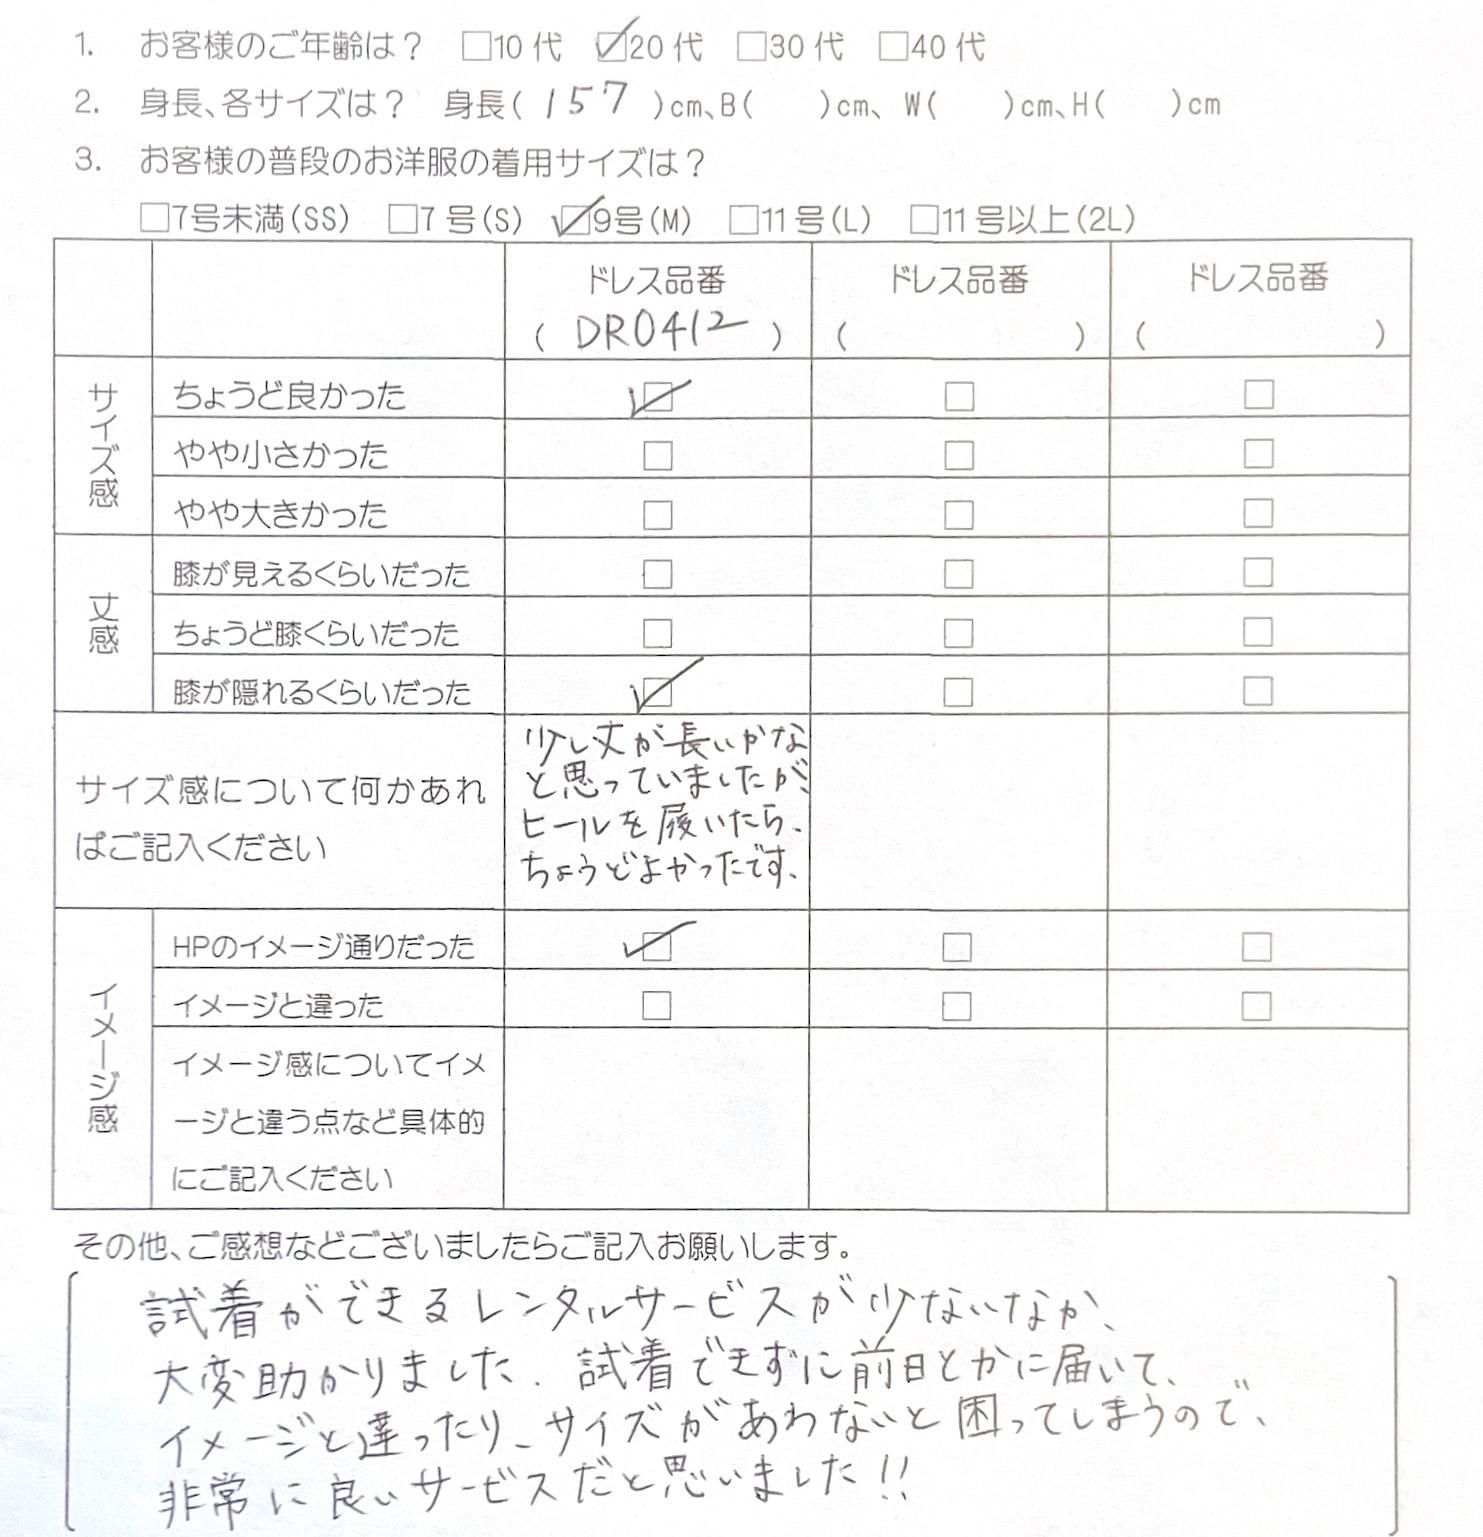 1. お客様のご年齢は？ □10代 ☑20代 □30代 □40代
2. 身長、各サイズは？ 身長( 157 )cm、B( )cm、W( )cm、H( )cm
3. お客様の普段のお洋服の着用サイズは？
□7号未満(SS) □7号(S) ☑9号(M) □11号(L) □11号以上(2L)
ドレス品番 ドレス品番 ドレス品番
( DR0412 ) ( ) ( )
サイズ感
ちょうど良かった ☑ □ □
やや小さかった □ □ □
やや大きかった □ □ □
丈感
膝が見えるくらいだった □ □ □
ちょうど膝くらいだった □ □ □
膝が隠れるくらいだった ☑ □ □
サイズ感について何かあれ
ばご記入ください
少し丈が長いかな
と思っていましたが、
ヒールを履いたら、
ちょうどよかったです、
イメージ感
HPのイメージ通りだった ☑ □ □
イメージと違った □ □ □
イメージ感についてイメ
ージと違う点など具体的
にご記入ください
その他、ご感想などございましたらご記入お願いします。
試着ができるレンタルサービスが少ないなか、
大変助かりました、試着できずに前日とかに届いて、
イメージと違ったり、サイズがあわないと困ってしまうので、
非常に良いサービスだと思いました!!